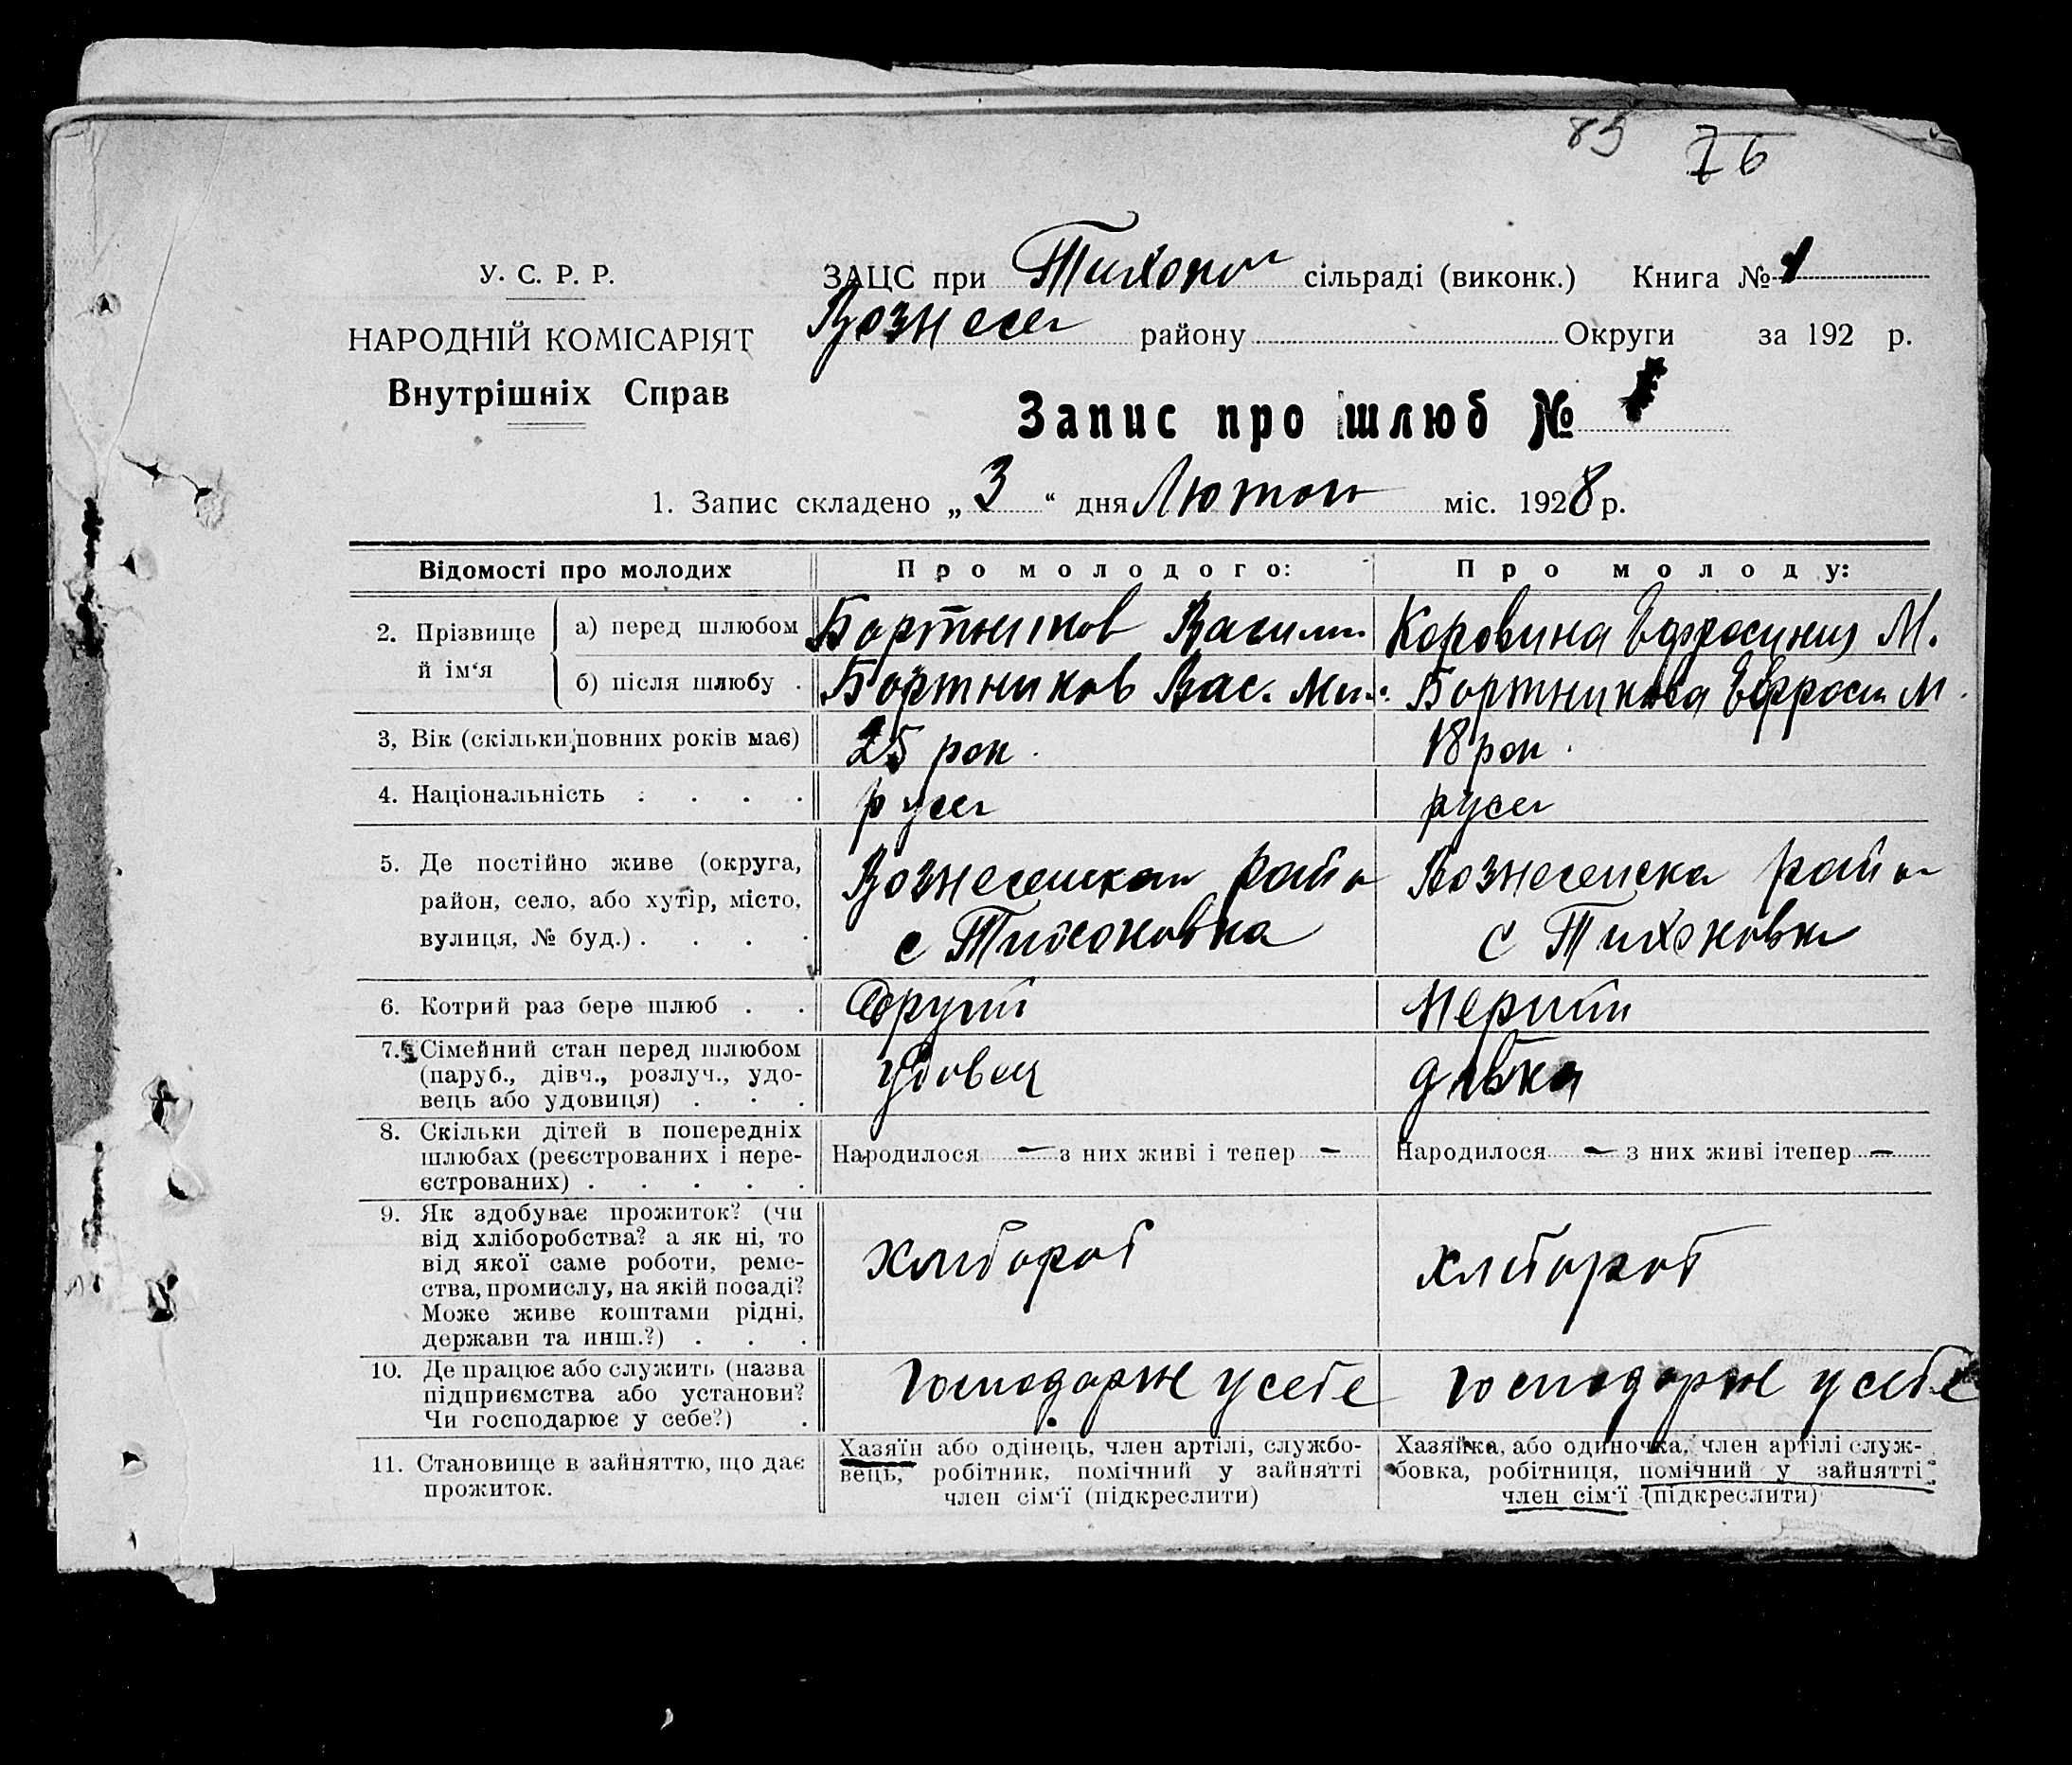 85 76
У. С. Р. Р.
НАРОДНІЙ КОМІСАРІЯТ
Внутрішніх Справ
ЗАЦС при Тихонов сільраді (виконк.) Книга № 1
Вознесен району Округи за 192 р.
Запис про шлюб №
1. Запис складено „ 3 “ дня Лютого міс. 1928 р.
Відомості про молодих Про молодого: Про молоду:
2. Прізвище й ім‘я
а) перед шлюбом Бортников Василий Коровина Ефросиния М.
б) після шлюбу . Бортников Вас. Мих. Бортникова Ефросин М.
3, Вік (скільки повних років має) 25 рок. 18 рок.
4. Національність . . . . русск русск
5. Де постійно живе (округа, район, село, або хутір, місто, вулиця, № буд.) . . . .
Вознесенскаи район
с Тихоновка
Вознесенска район
с Тихоновка
6. Котрий раз бере шлюб . . Другий Перший
7. Сімейний стан перед шлюбом
(паруб., дівч., розлуч., удо-
вець або удовиця) . . . удовец дівка
8. Скільки дітей в попередніх
шлюбах (реєстрованих і нере-
єстрованих) . . . . .
Народилося — з них живі і тепер —
Народилося — з них живі ітепер —
9. Як здобуває прожиток? (чи
від хліборобства? а як ні, то
від якої саме роботи, реме-
ства, промислу, на якій посаді?
Може живе коштами рідні,
держави та инш.?) . . .
хлібороб
хлібороб
10. Де працює або служить (назва
підприємства або установи?
Чи господарює у себе?) .
господарює у себе
господарює у себе
11. Становище в зайняттю, що дає
прожиток.
Хазяїн або одінець, член артілі, службо-
вець, робітник, помічний у зайнятті
член сім‘ї (підкреслити)
Хазяйка, або одиночка, член артілі служ-
бовка, робітниця, помічний у зайнятті
член сім‘ї (підкреслити)